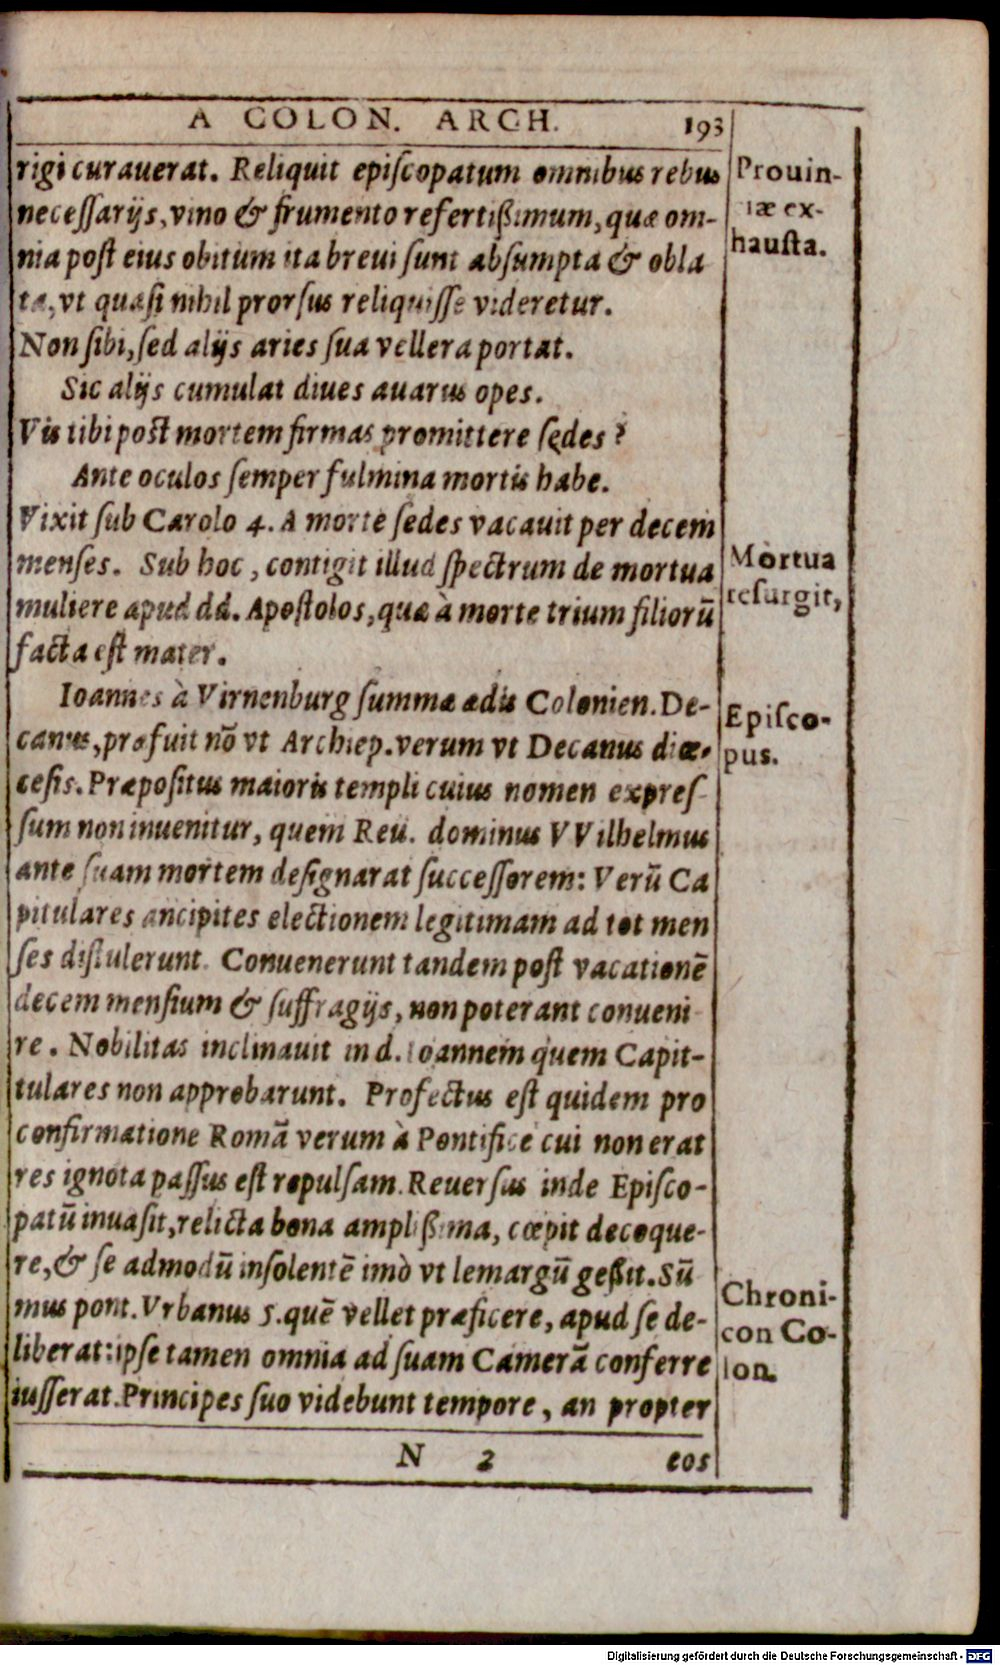 A COLON. ARCH. 193
rigi curauerat. Reliquit episcopatum omnibus rebus
necessarijs, vino & frumento refertißimum, quæ om-
nia post eius obitum ita breui sunt absumpta & obla
ta, vt quasi nihil prorsus reliquisse videretur.
Non sibi, sed alijs aries sua vellera portat.
Sic alijs cumulat diues auarus opes.
Vis tibi post mortem firmas promittere sędes?
Ante oculos semper fulmina mortis habe.
Vixit sub Carolo 4. A morte sedes vacauit per decem
menses. Sub hoc, contigit illud spectrum de mortua
muliere apud dd. Apostolos, quæ à morte trium filiorū
facta est mater.
Ioannes à Virnenburg summæ ædis Colonien. De-
canus, præfuit nō vt Archiep. verum vt Decanus diœ-
cesis. Præpositus maioris templi cuius nomen expres-
sum non inuenitur, quem Reu. dominus VVilhelmus
ante suam mortem designarat successorem: Verū Ca
pitulares ancipites electionem legitimam ad tot men
ses distulerunt. Conuenerunt tandem post vacationē
decem mensium & suffragijs, non poterant conueni
re. Nobilitas inclinauit in d. Ioannem quem Capit-
tulares non approbarunt. Profectus est quidem pro
confirmatione Romā verum à Pontifice cui non erat
res ignota passus est repulsam. Reuersus inde Episco-
patū inuasit, relicta bona amplißima, cœpit decoque-
re, & se admodū insolentē imò vt lemargū geßit. Sū
mus pont. Vrbanus 5. quē vellet præficere, apud se de-
liberat: ipse tamen omnia ad suam Camerā conferre
iusserat. Principes suo videbunt tempore, an propter
N 2 eos
Prouin-
iæ ex-
hausta.
Mortua
resurgit,
Episco-
pus.
Chroni-
con Co-
lon.
Digitalisierung gefördert durch die Deutsche Forschungsgemeinschaft - DFG